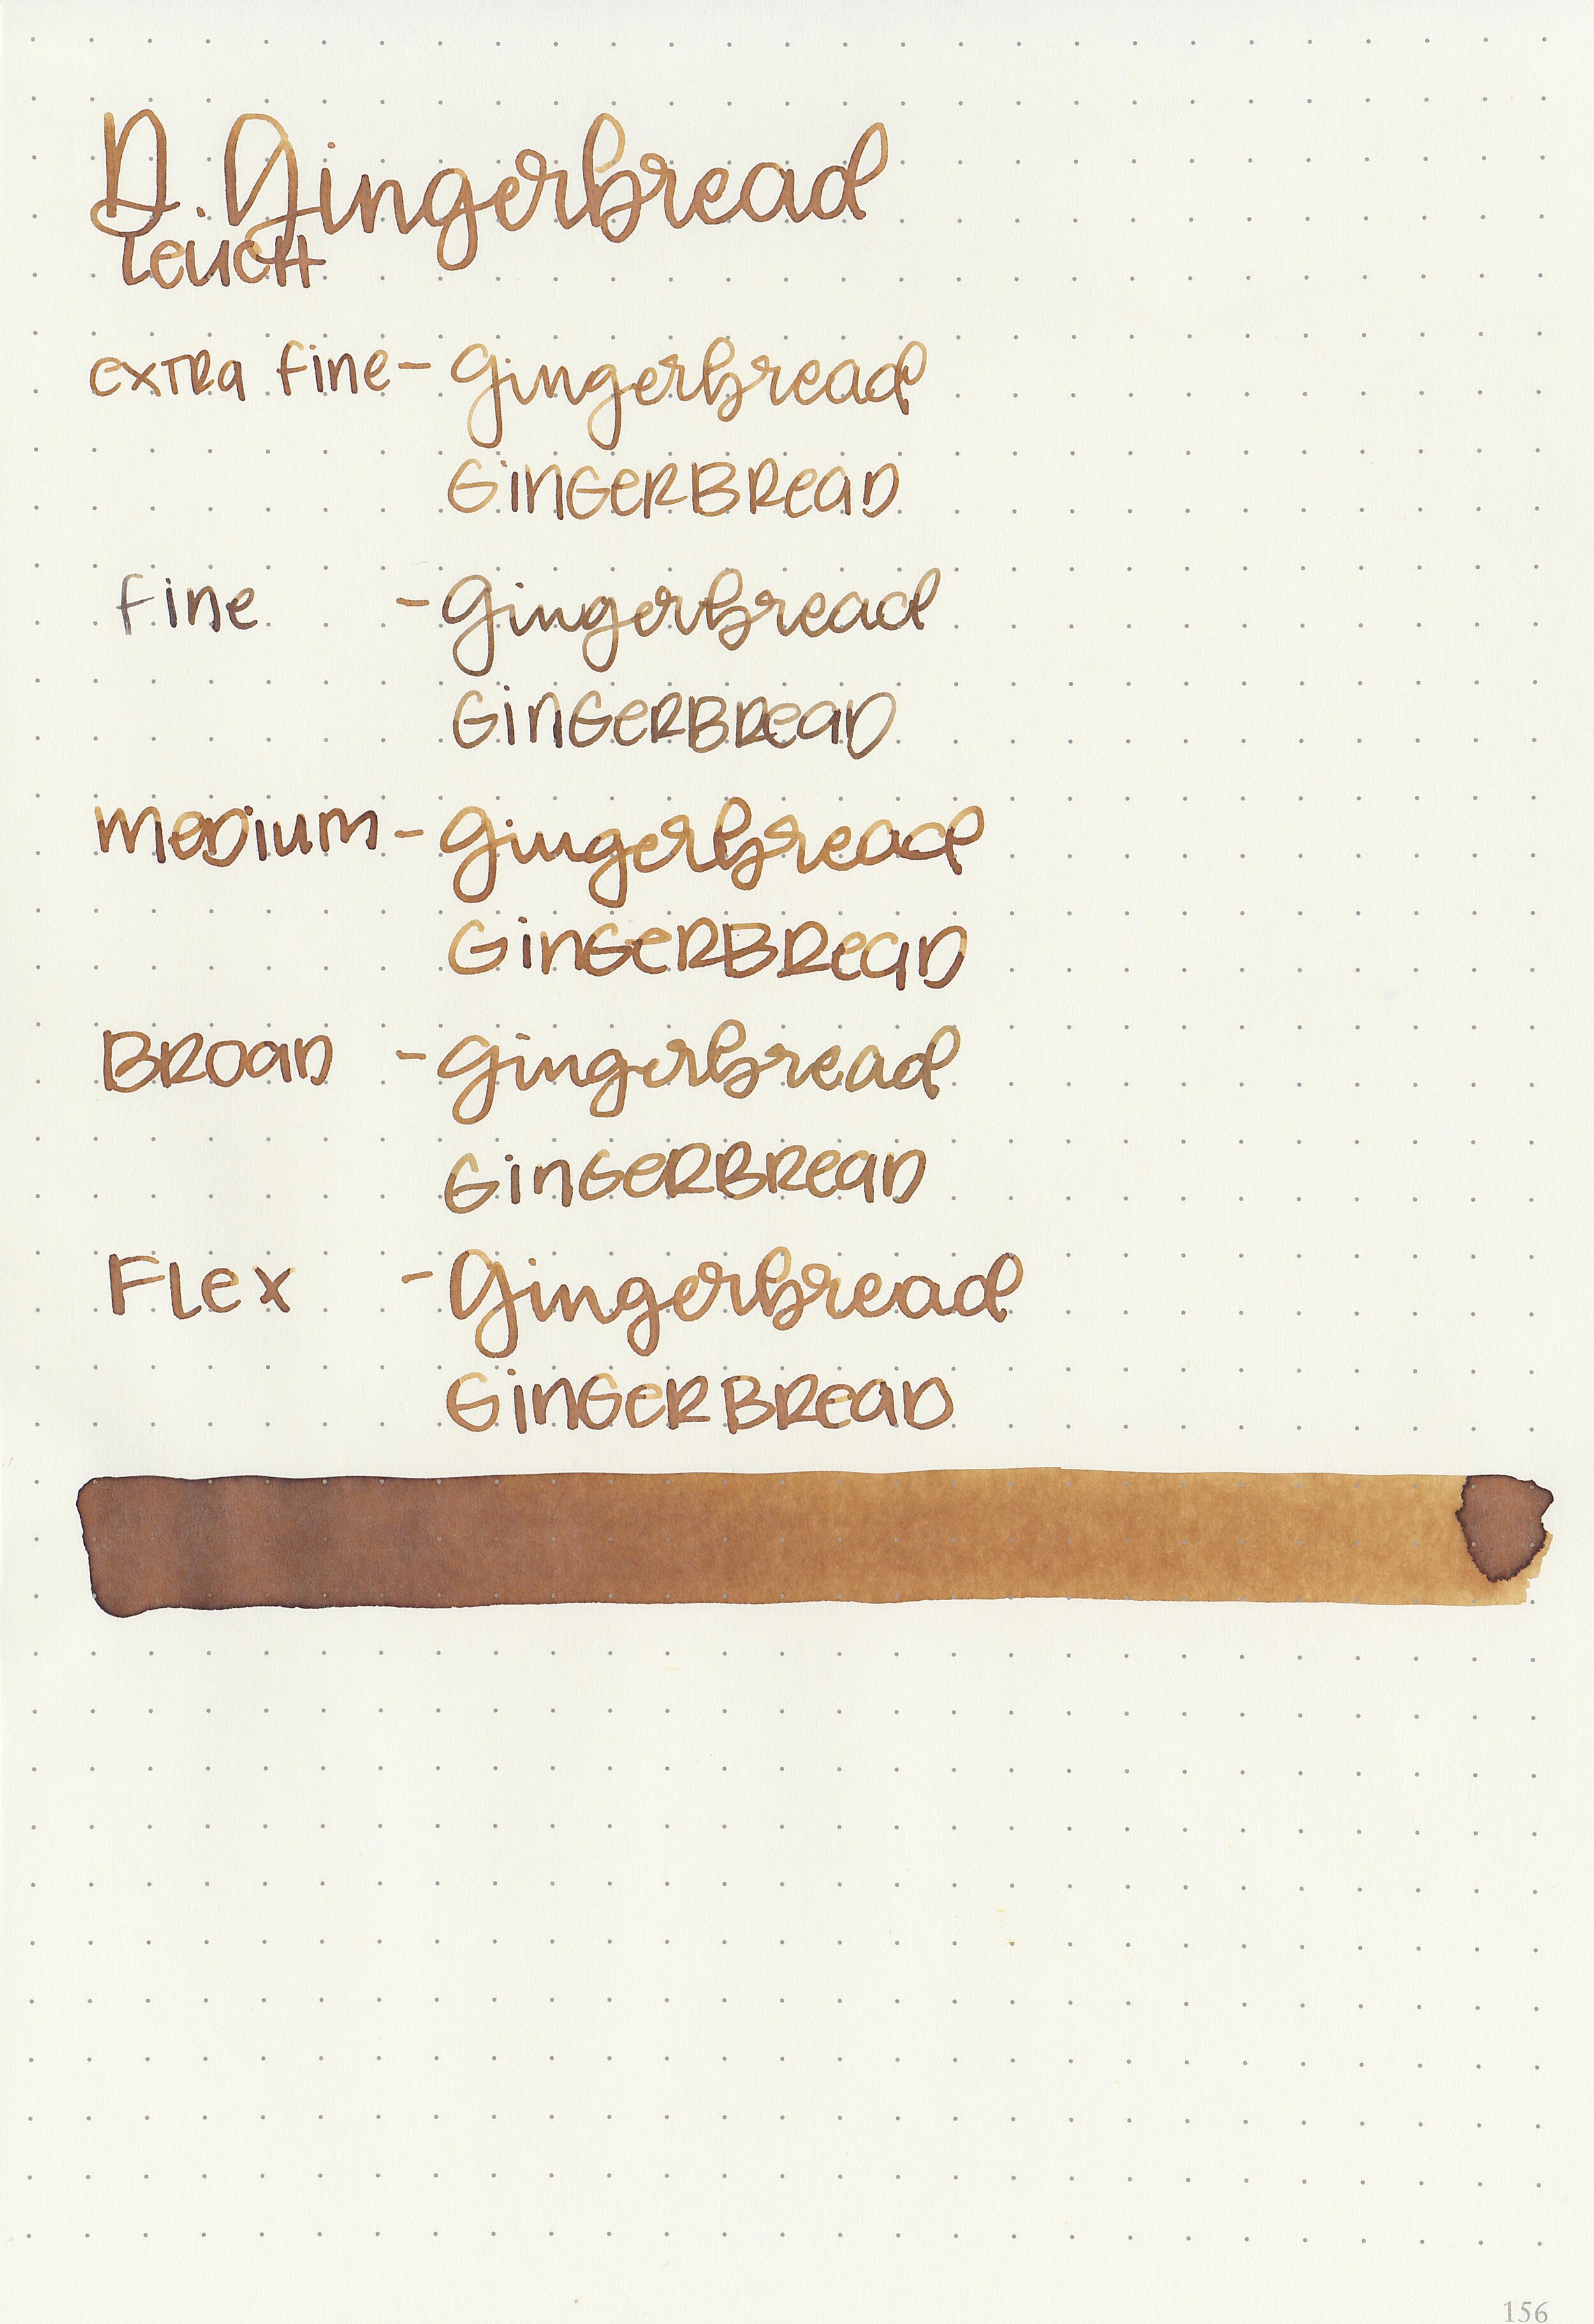 D. Gingerbread
Leucht
extra fine - Gingerbread
GinGerBread
fine - Gingerbread
GinGerBread
medium - Gingerbread
GinGerBread
Broad - Gingerbread
GinGerBread
Flex - Gingerbread
GinGerBread
156